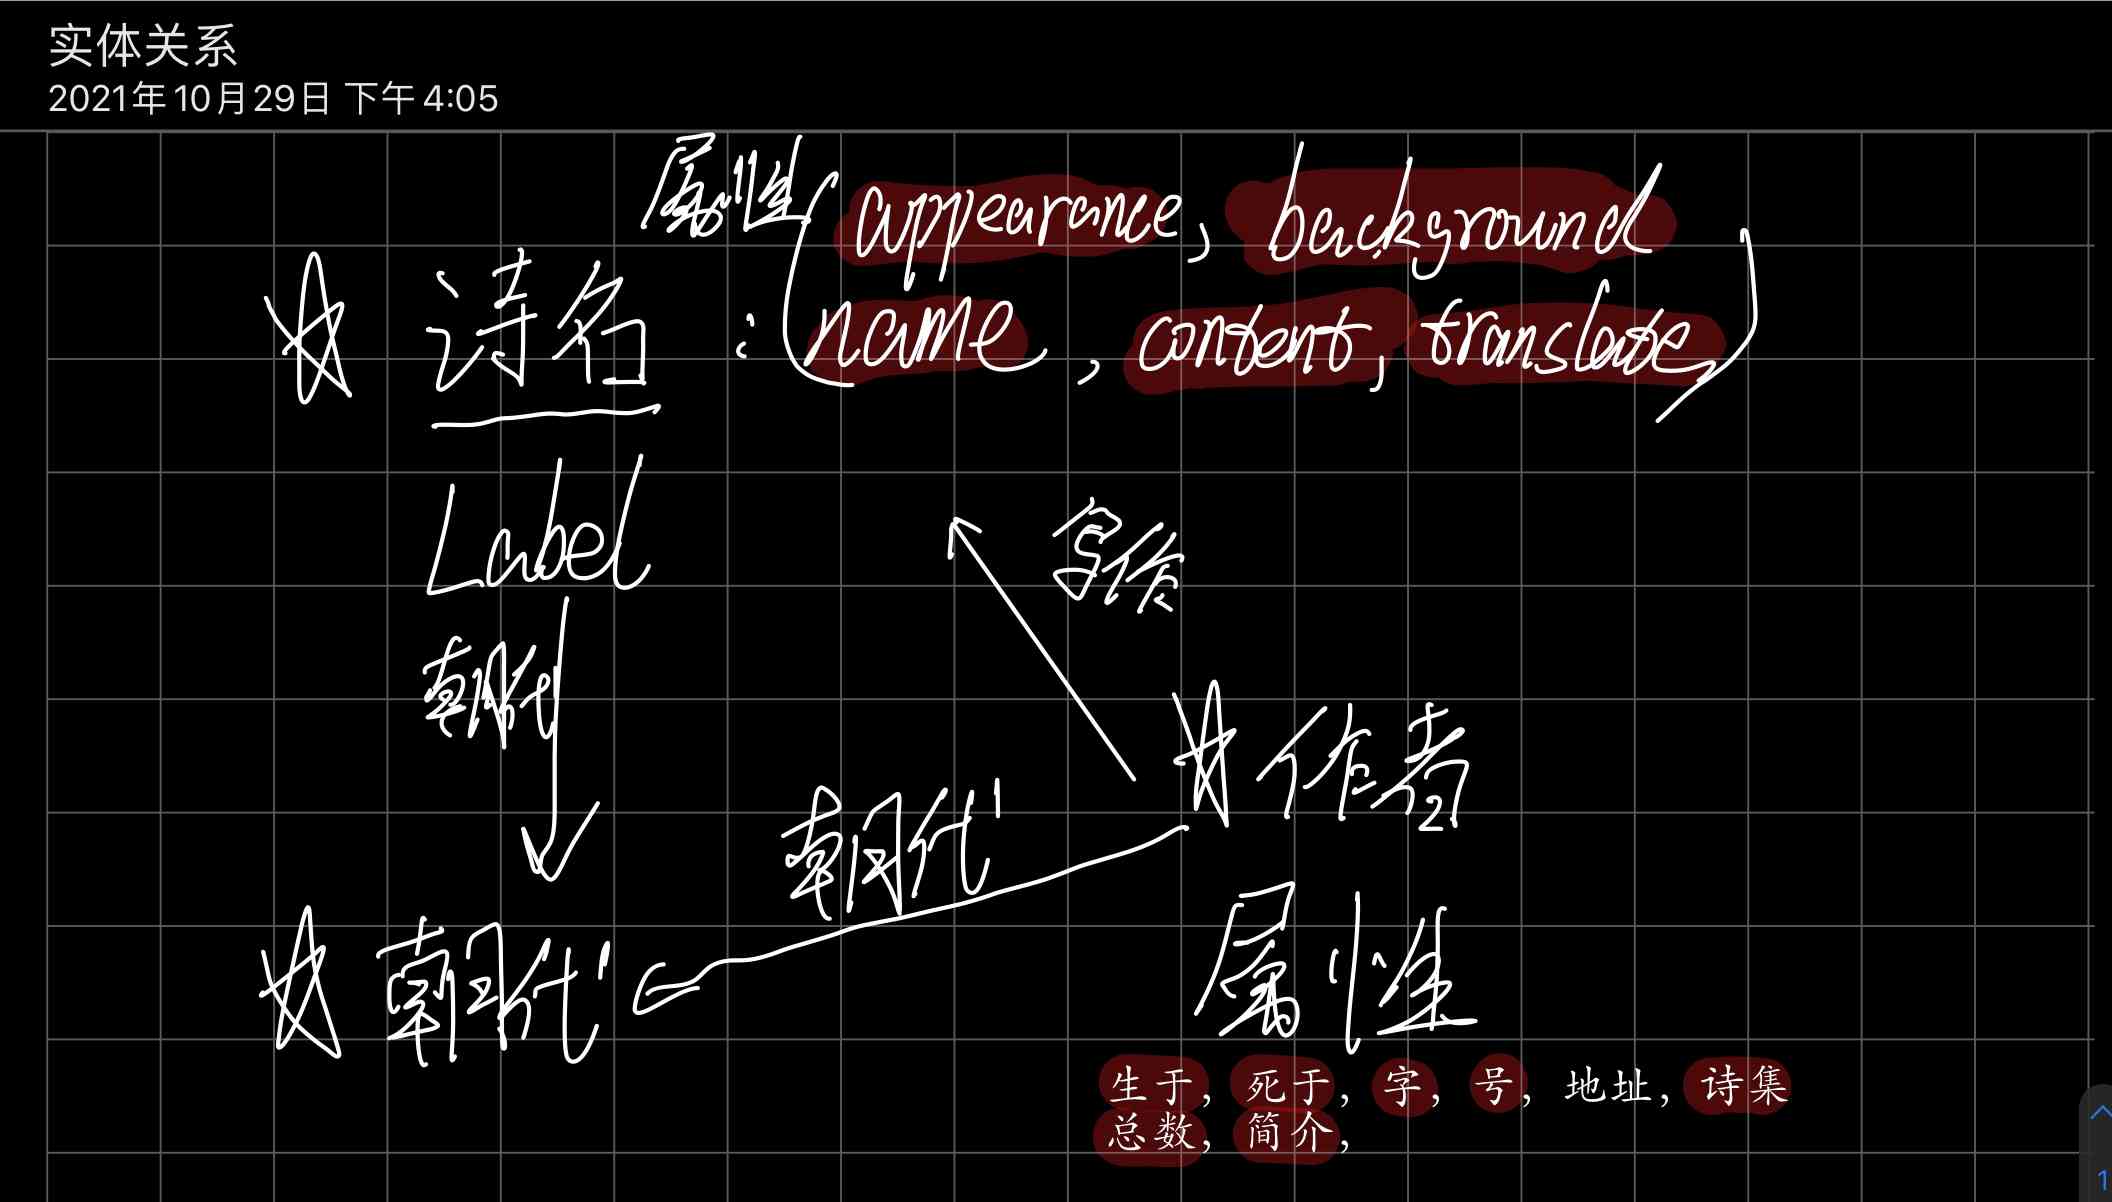 实体关系
2021年10月29日 下午4:05
属性(appearance, background
诗名:name, content, translate)
Label
写作
朝代
作者
朝代
朝代
属性
生于, 死于, 字, 号, 地址, 诗集
总数, 简介,
1